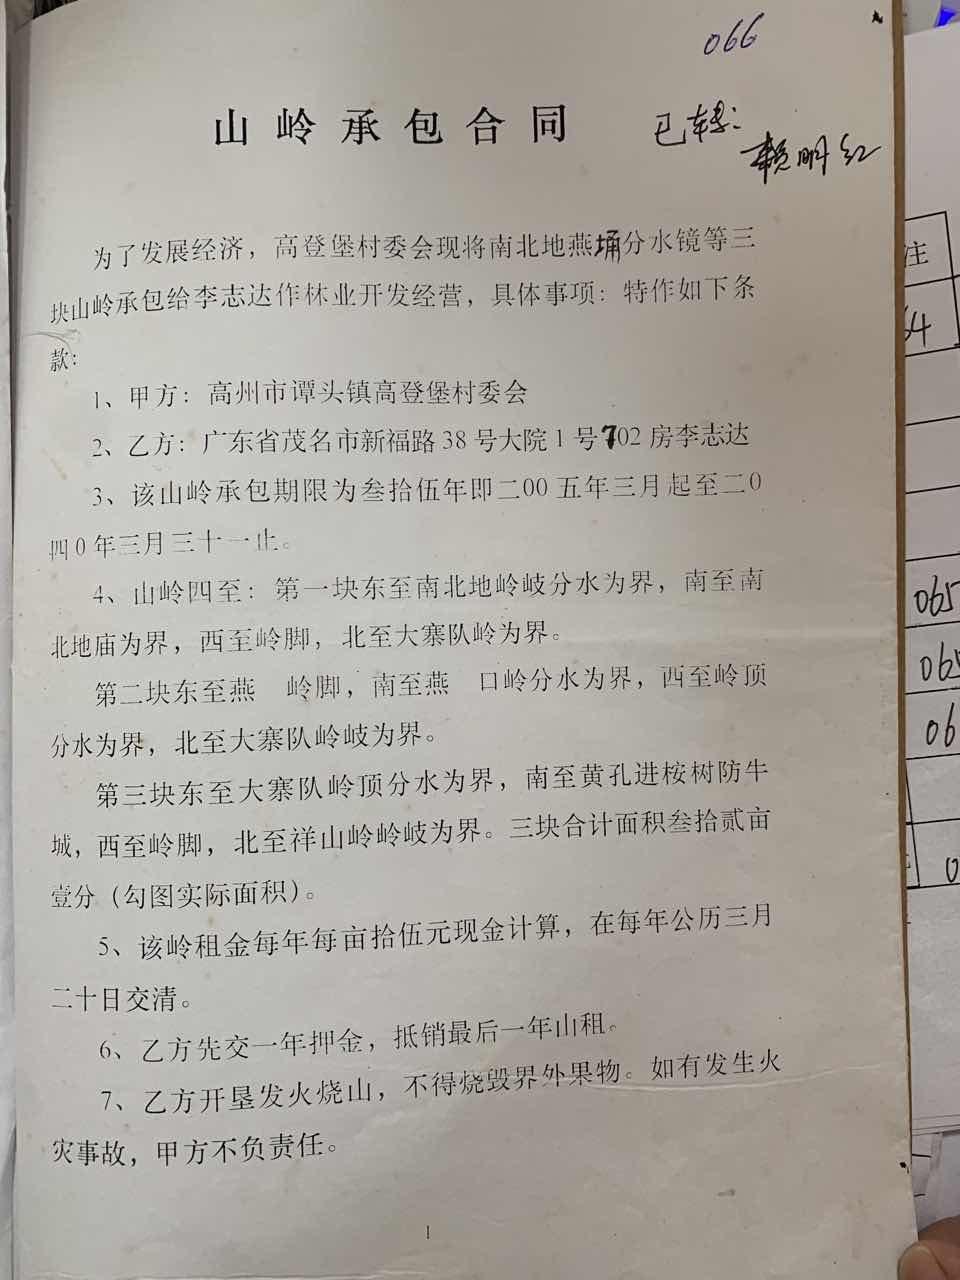 066
山岭承包合同
已转:
赖明红
为了发展经济，高登堡村委会现将南北地燕埇分水镜等三
块山岭承包给李志达作林业开发经营，具体事项：特作如下条
款：
1、甲方：高州市谭头镇高登堡村委会
2、乙方：广东省茂名市新福路38号大院1号702房李志达
3、该山岭承包期限为叁拾伍年即二00五年三月起至二0
四0年三月三十一止。
4、山岭四至：第一块东至南北地岭岐分水为界，南至南
北地庙为界，西至岭脚，北至大寨队岭为界。
第二块东至燕　岭脚，南至燕　口岭分水为界，西至岭顶
分水为界，北至大寨队岭岐为界。
第三块东至大寨队岭顶分水为界，南至黄孔进桉树防牛
城，西至岭脚，北至祥山岭岭岐为界。三块合计面积叁拾贰亩
壹分（勾图实际面积）。
5、该岭租金每年每亩拾伍元现金计算，在每年公历三月
二十日交清。
6、乙方先交一年押金，抵销最后一年山租。
7、乙方开垦发火烧山，不得烧毁界外果物。如有发生火
灾事故，甲方不负责任。
1
注
64
065
065
06
0